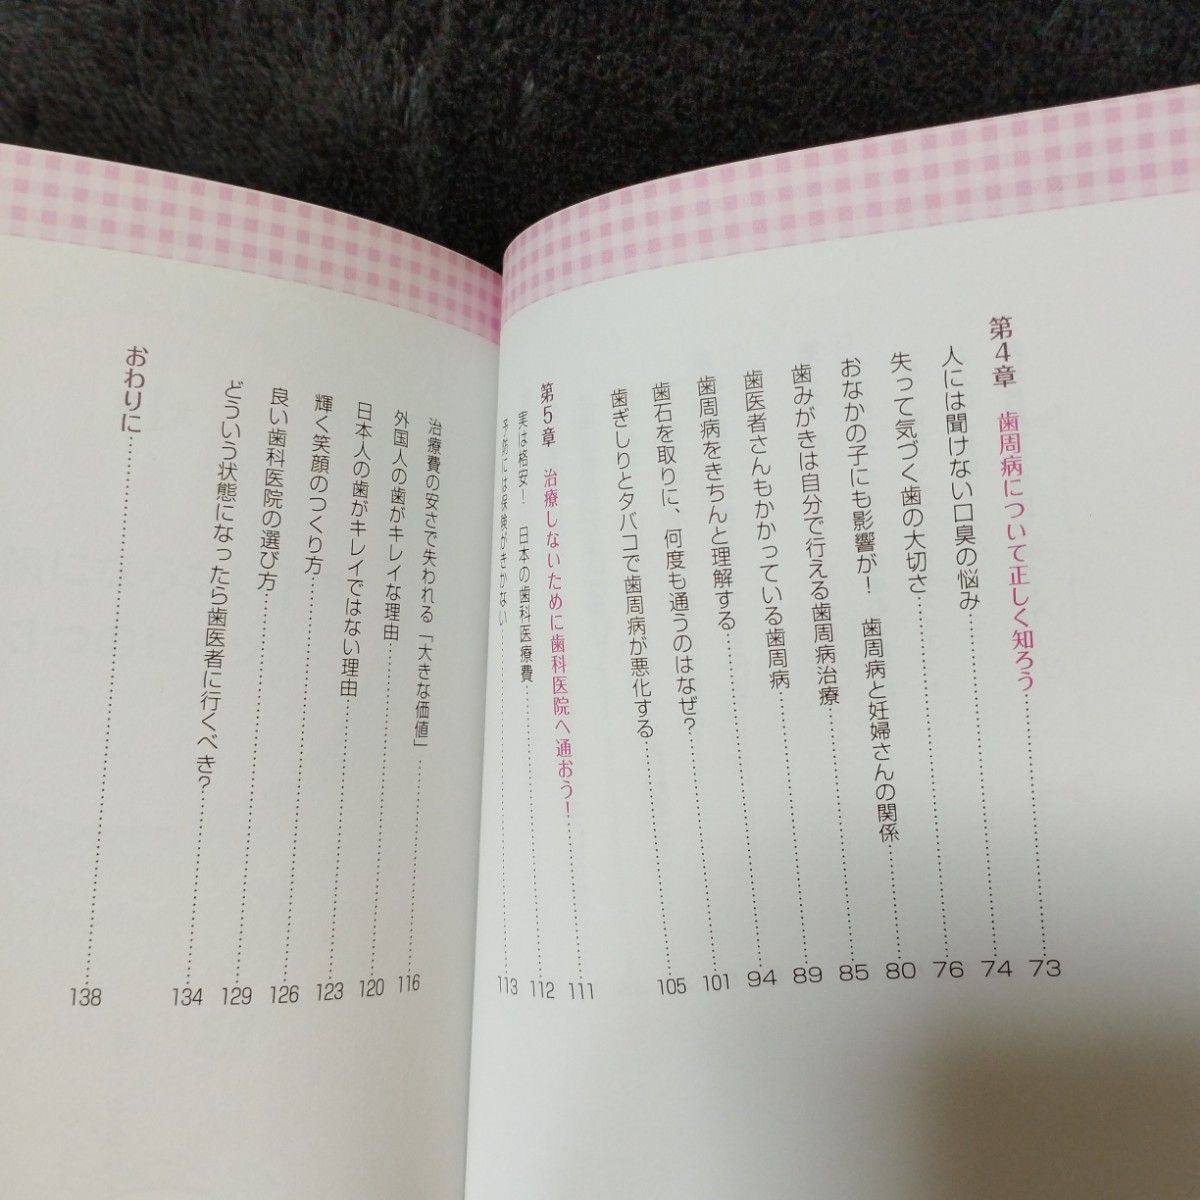 第4章　歯周病について正しく知ろう……73
人には聞けない口臭の悩み……74
失って気づく歯の大切さ……76
おなかの子にも影響が！　歯周病と妊婦さんの関係……80
歯みがきは自分で行える歯周病治療……85
歯医者さんもかかっている歯周病……89
歯周病をきちんと理解する……94
歯石を取りに、何度も通うのはなぜ？……101
歯ぎしりとタバコで歯周病が悪化する……105
第5章　治療しないために歯科医院へ通おう！……111
実は格安！　日本の歯科医療費……112
予防には保険がきかない……113
治療費の安さで失われる「大きな価値」……116
外国人の歯がキレイな理由……120
日本人の歯がキレイではない理由……123
輝く笑顔のつくり方……126
良い歯科医院の選び方……129
どういう状態になったら歯医者に行くべき？……134
おわりに……138